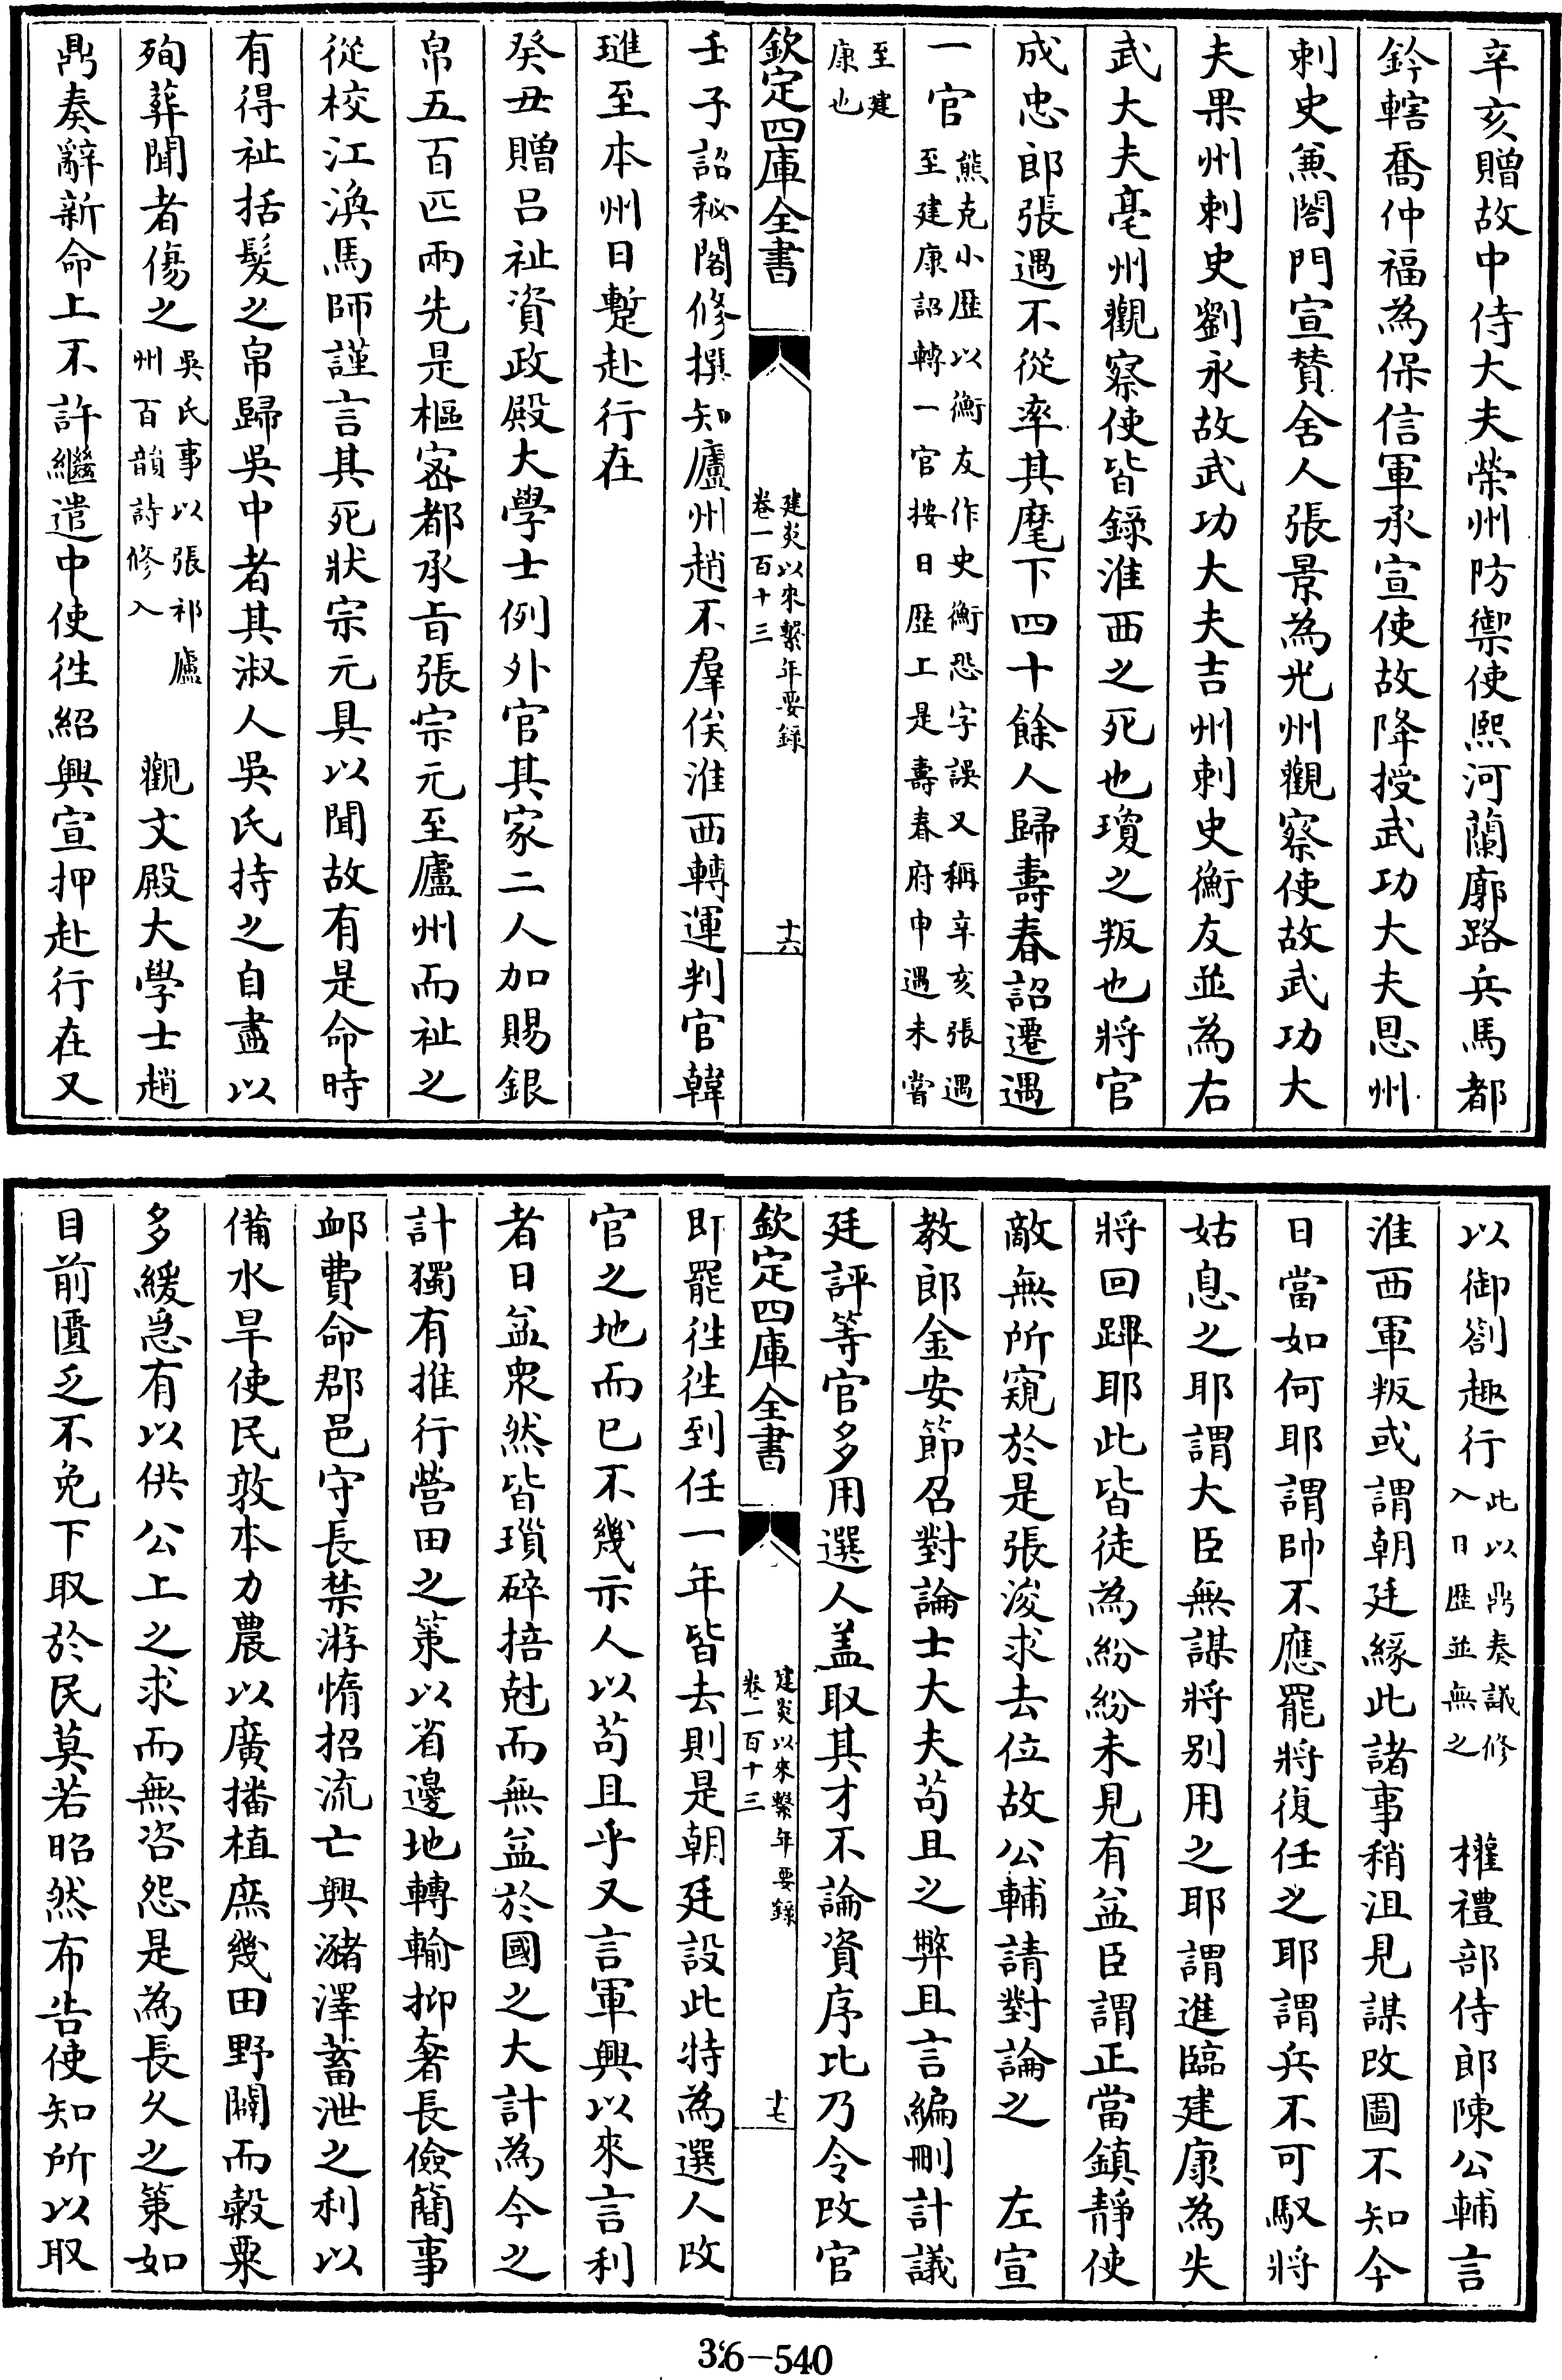 辛亥贈故中侍大夫榮州防禦使熙河蘭廓路兵馬都
鈐轄喬仲福為保信軍承宣使故降授武功大夫恩州
刺史兼閤門宣贊舍人張景為光州觀察使故武功大
夫果州刺史劉永故武功大夫吉州刺史衡友並為右
武大夫亳州觀察使皆錄淮西之死也瓊之叛也將官
成忠郎張遇不從率其麾下四十餘人歸壽春詔遷遇
一官熊克小歷以衡友作史衡恐字誤又稱辛亥張遇
至建康詔轉一官按日歷工是壽春府申遇未嘗
至建
康也
欽定四庫全書
建炎以來繫年要錄
卷一百十三
十六
壬子詔秘閣修撰知廬州趙不羣俟淮西轉運判官韓
璡至本州日蹔赴行在
癸丑贈呂祉資政殿大學士例外官其家二人加賜銀
帛五百匹兩先是樞密都承旨張宗元至廬州而祉之
從校江渙馬師謹言其死狀宗元具以聞故有是命時
有得祉括髮之帛歸吳中者其淑人吳氏持之自盡以
殉葬聞者傷之吳氏事以張祁廬
州百韻詩修入
觀文殿大學士趙
鼎奏辭新命上不許繼遣中使徃紹興宣押赴行在又
以御劄趣行此以鼎奏議修
入日歷並無之
權禮部侍郎陳公輔言
淮西軍叛或謂朝廷緣此諸事稍沮見謀改圖不知今
日當如何耶謂帥不應罷將復任之耶謂兵不可馭將
姑息之耶謂大臣無謀將别用之耶謂進臨建康為失
將回蹕耶此皆徒為紛紛未見有益臣謂正當鎮靜使
敵無所窺於是張浚求去位故公輔請對論之　左宣
教郎金安節召對論士大夫苟且之弊且言編刪計議
廷評等官多用選人盖取其才不論資序比乃令改官
欽定四庫全書
建炎以來繫年要錄
卷一百十三
十七
即罷徃徃到任一年皆去則是朝廷設此特為選人改
官之地而已不幾示人以苟且乎又言軍興以來言利
者日益衆然皆瑣碎掊尅而無益於國之大計為今之
計獨有推行營田之策以省邊地轉輸抑奢長儉簡事
卹費命郡邑守長禁游惰招流亡興瀦澤蓄泄之利以
備水旱使民敦本力農以廣播植庶幾田野闢而榖粟
多緩急有以供公上之求而無咨怨是為長久之策如
目前匱乏不免下取於民莫若昭然布告使知所以取
326-540